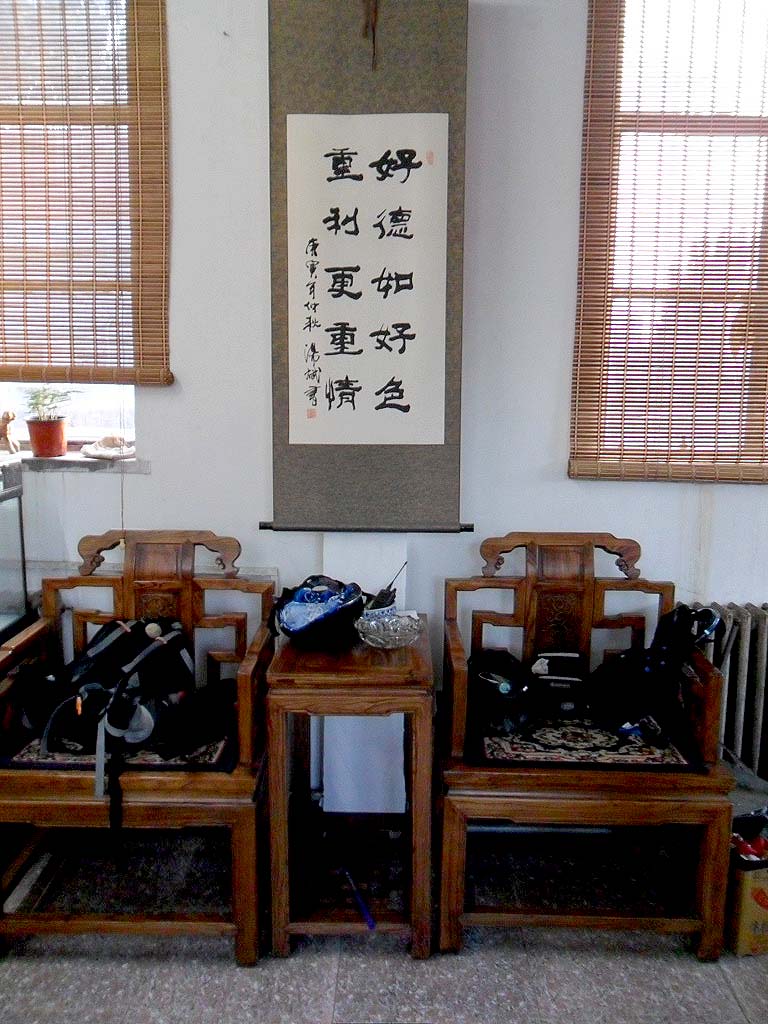 好德如好色
重利更重情
庚寅年仲秋 湯斌書